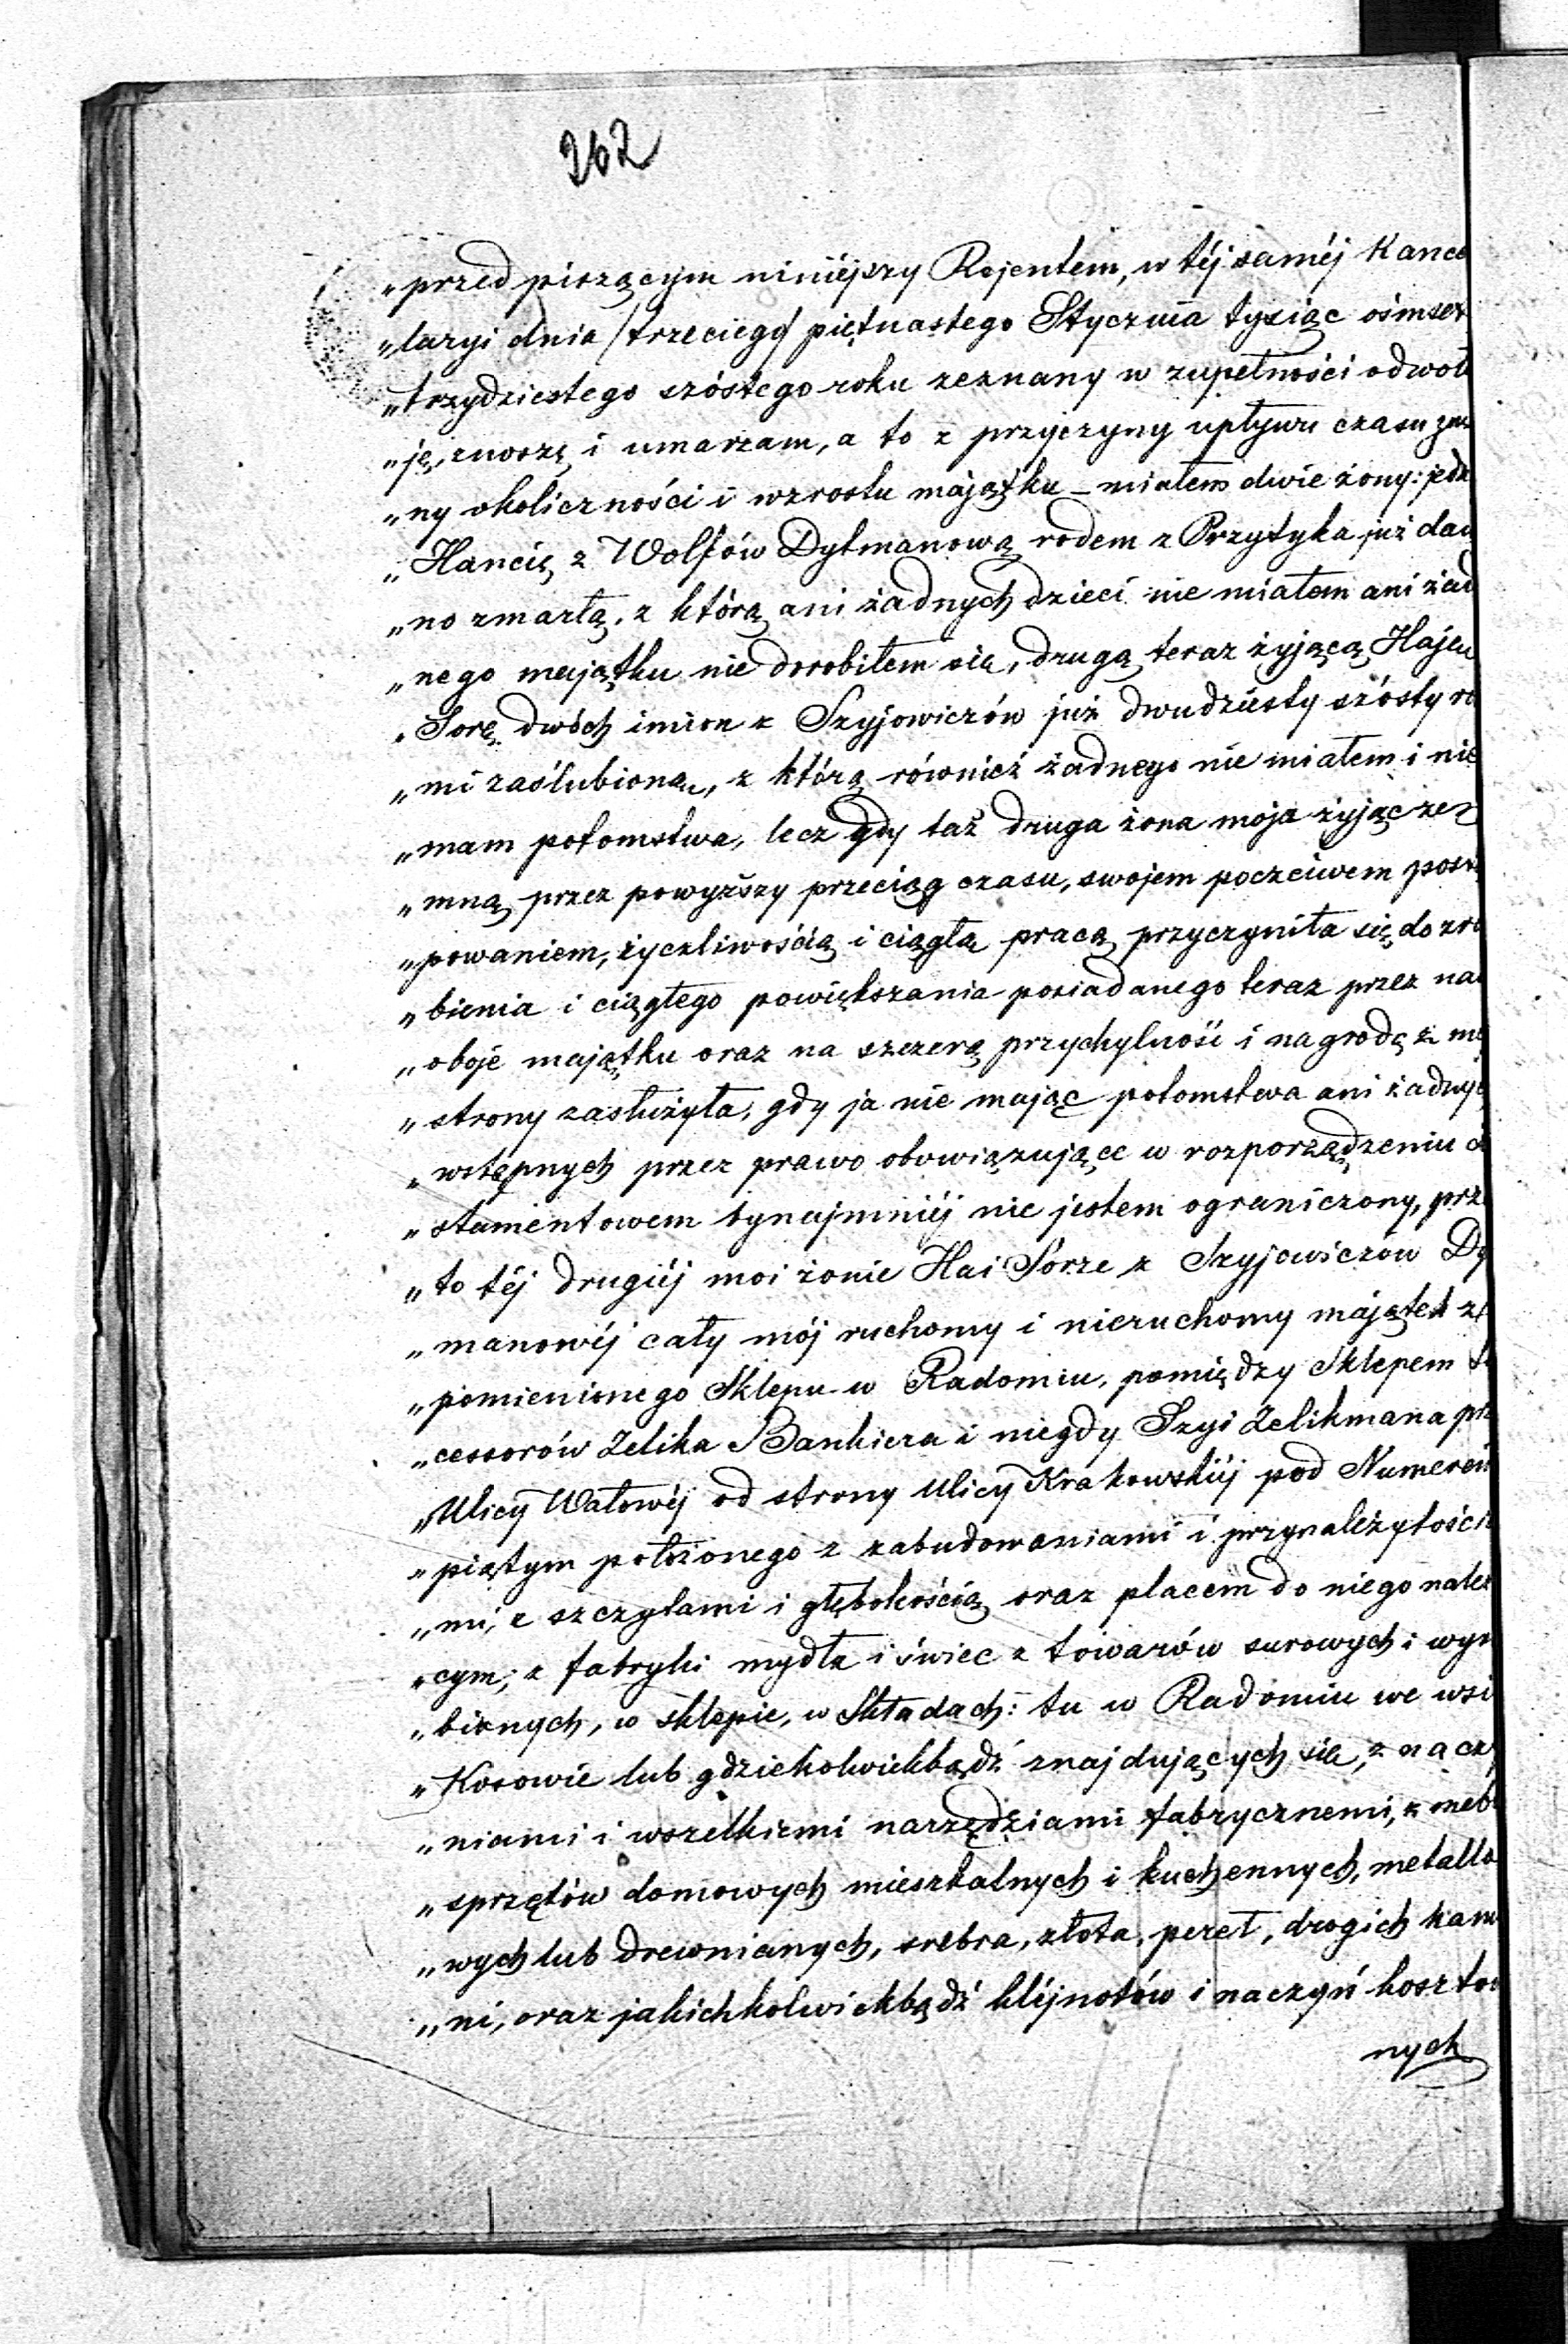 262
„przed piszącym niniéjszy Rejentem, w téj saméj Kance
„laryi dnia /trzeciego/ piętnastego Stycznia tysiąc ośmset
„trzydziestego szóstego roku zeznany w zupełności odwoł
„ję, znoszę i umarzam, a to z przyczyny upływu czasu zm
„ny okoliczności i wzrostu majątku – miałem dwie żony: jedn
„Hancię z Wolfów Dytmanową rodem z Przytyka już daw
„no zmarłą, z którą ani żadnych dzieci nie miałem ani żad
„nego majątku nie dorobiłem się, drugą teraz żyjącą Haję
„Sorę dwóch imion z Szyjowiczów już dwudziesty szósty ro
„mi zaślubioną, z którą również żadnego nie miałem i nie
„mam potomstwa, lecz gdy taż druga żona moja żyjąc ze
„mną przez powyższy przeciąg czasu, swojem poczciwem postę
„powaniem, życzliwością i ciągłą pracą przyczyniła się do zro
„bienia i ciągłego powiększania posiadanego teraz przez nas
„oboje majątku oraz na szczerą przychylność i nagrodę z mé
„strony zasłużyła, gdy ja nie mając potomstwa ani żadnyc
„wstępnych przez prawo obowiązujące w rozporządzeniu
„stamentowem bynajmniéj nie jestem ograniczony, prze
„to téj drugiéj moi żonie Hai Sorze z Szyjowiczów Dy
„manowéj cały mój ruchomy i nieruchomy majątek z
„pomienionego Sklepu w Radomiu, pomiędzy Sklepem Su
„cessorów Zelika Bankiera i niegdy Szyi Zelikmana prz
„Ulicy Wałowéj od strony Ulicy Krakowskiéj pod Numerem
„piątym położonego z zabudowaniami i przynależytościa
„mi, z szczytami i głębokością oraz placem do niego należ
„cym; z fabryki mydła i świec z towarów surowych i wyr
„bionych, w sklepie, w Składach: tu w Radomiu we wsi
„Kosowie lub gdziekolwiekbądź znajdujących się, z naczy
„niami i wszelkiemi narzędziami fabrycznemi, z meb
„sprzętów domowych mieszkalnych i kuchennych, metallo
„wych lub drewnianych, srebra, złota, pereł, drogich kam
„ni, oraz jakichkolwiekbądź kléjnotów i naczyń kosztow
nych